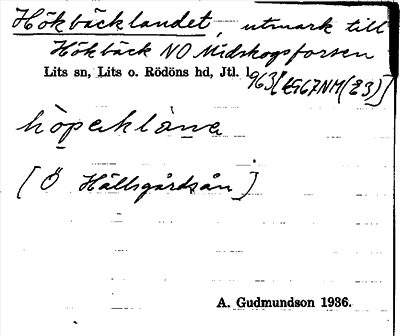 Hökbäcklandet, utmark till
Hökbäck NO Midskogsforsen
Lits sn, Lits o. Rödöns hd, Jtl. 1963 [EG67NM(23)]
hö̀pәklàna
[Ö Hällsgårdsån]
A. Gudmundson 1936.